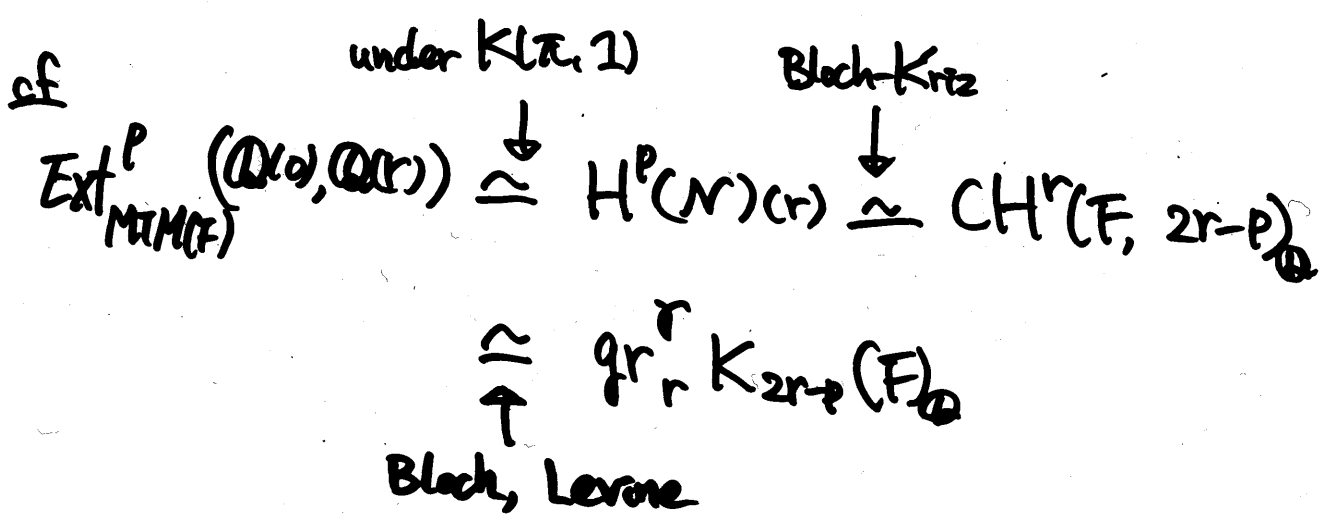 under K(π, 1)
Bloch-Kriz
cf
Ext^p_{MTM(F)} (ℚ(0), ℚ(r)) ≃ H^p(N)(r) ≃ CH^r(F, 2r-p)_ℚ
≃ gr^γ_r K_{2r-p}(F)_ℚ
Bloch, Levine